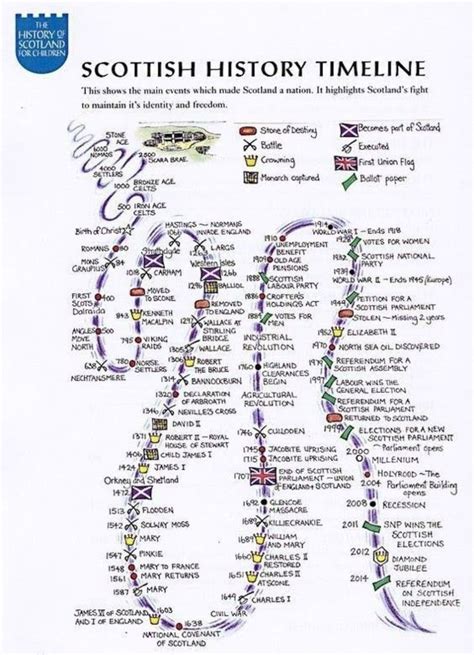 THE
HISTORY OF
SCOTLAND
FOR CHILDREN
SCOTTISH HISTORY TIMELINE
This shows the main events which made Scotland a nation. It highlights Scotland's fight
to maintain it's identity and freedom.
Stone of Destiny
Battle
Crowning
Monarch captured
Becomes part of Scotland
Executed
First Union Flag
Ballot paper
STONE
AGE
6000
NOMADS
4000
SETTLERS
2,500
SKARA BRAE
BRONZE AGE
1000 CELTS
500 IRON AGE
CELTS
Birth of Christ
ROMANS 80
MONS 84
GRAUPIUS
FIRST 500
SCOTS
Dalraida
ANGLES 500
MOVE
NORTH
685
NECHTANSMERE
780 NORSE
SETTLERS
795 VIKING
RAIDS
843 KENNETH
MACALPIN
MOVED
TO SCONE
1018 CARHAM
Strathclyde
HASTINGS ~ NORMANS
1066 INVADE ENGLAND
1263 LARGS
Western Isles
1266
1296 BALLIOL
REMOVED
TO ENGLAND
1297 WALLACE AT
STIRLING
BRIDGE
1305 WALLACE
1306 ROBERT
THE BRUCE
1314 BANNOCKBURN
1320 DECLARATION
OF ARBROATH
1346 NEVILLE'S CROSS
DAVID II
1371 ROBERT II ~ ROYAL
HOUSE OF STEWART
1406 CHILD JAMES I
1424 JAMES I
Orkney and Shetland
1472
1513 FLODDEN
1542 SOLWAY MOSS
1542 MARY
1547 PINKIE
1548 MARY TO FRANCE
1561 MARY RETURNS
1587 MARY
1603
JAMES VI OF SCOTLAND
AND I OF ENGLAND
1638
NATIONAL COVENANT OF
SCOTLAND
CIVIL WAR
1649 CHARLES I
1651 CHARLES II
AT SCONE
1660 CHARLES II
RESTORED
1689 WILLIAM
AND MARY
1689 KILLIECRANKIE
1692 GLENCOE
MASSACRE
1707 END OF SCOTTISH
PARLIAMENT ~ UNION
ENGLAND + SCOTLAND
1715 JACOBITE UPRISING
1745 JACOBITE UPRISING
1746 CULLODEN
AGRICULTURAL
REVOLUTION
1760 HIGHLAND
CLEARANCES
BEGIN
INDUSTRIAL
REVOLUTION
VOTES FOR
MEN
1886 CROFTER'S
HOLDINGS ACT
1888 SCOTTISH
LABOUR PARTY
1909 OLD AGE
PENSIONS
1910 UNEMPLOYMENT
BENEFIT
1914
WORLD WAR I ~ ENDS 1918
VOTES FOR WOMEN
SCOTTISH NATIONAL
PARTY
1939
WORLD WAR II ~ Ends 1945 (Europe)
PETITION FOR A
SCOTTISH PARLIAMENT
STOLEN ~ Missing 2 years
ELIZABETH II
1970 NORTH SEA OIL DISCOVERED
REFERENDUM FOR A
SCOTTISH ASSEMBLY
1997 LABOUR WINS THE
GENERAL ELECTION
REFERENDUM FOR A
SCOTTISH PARLIAMENT
RETURNED TO SCOTLAND
1999 ELECTIONS FOR A NEW
SCOTTISH PARLIAMENT
Parliament opens
2000 MILLENIUM
2004 HOLYROOD ~ The
Parliament Building
opens
2008 RECESSION
2011 SNP WINS THE
SCOTTISH
ELECTIONS
2012 DIAMOND
JUBILEE
2014 REFERENDUM
ON SCOTTISH
INDEPENDENCE